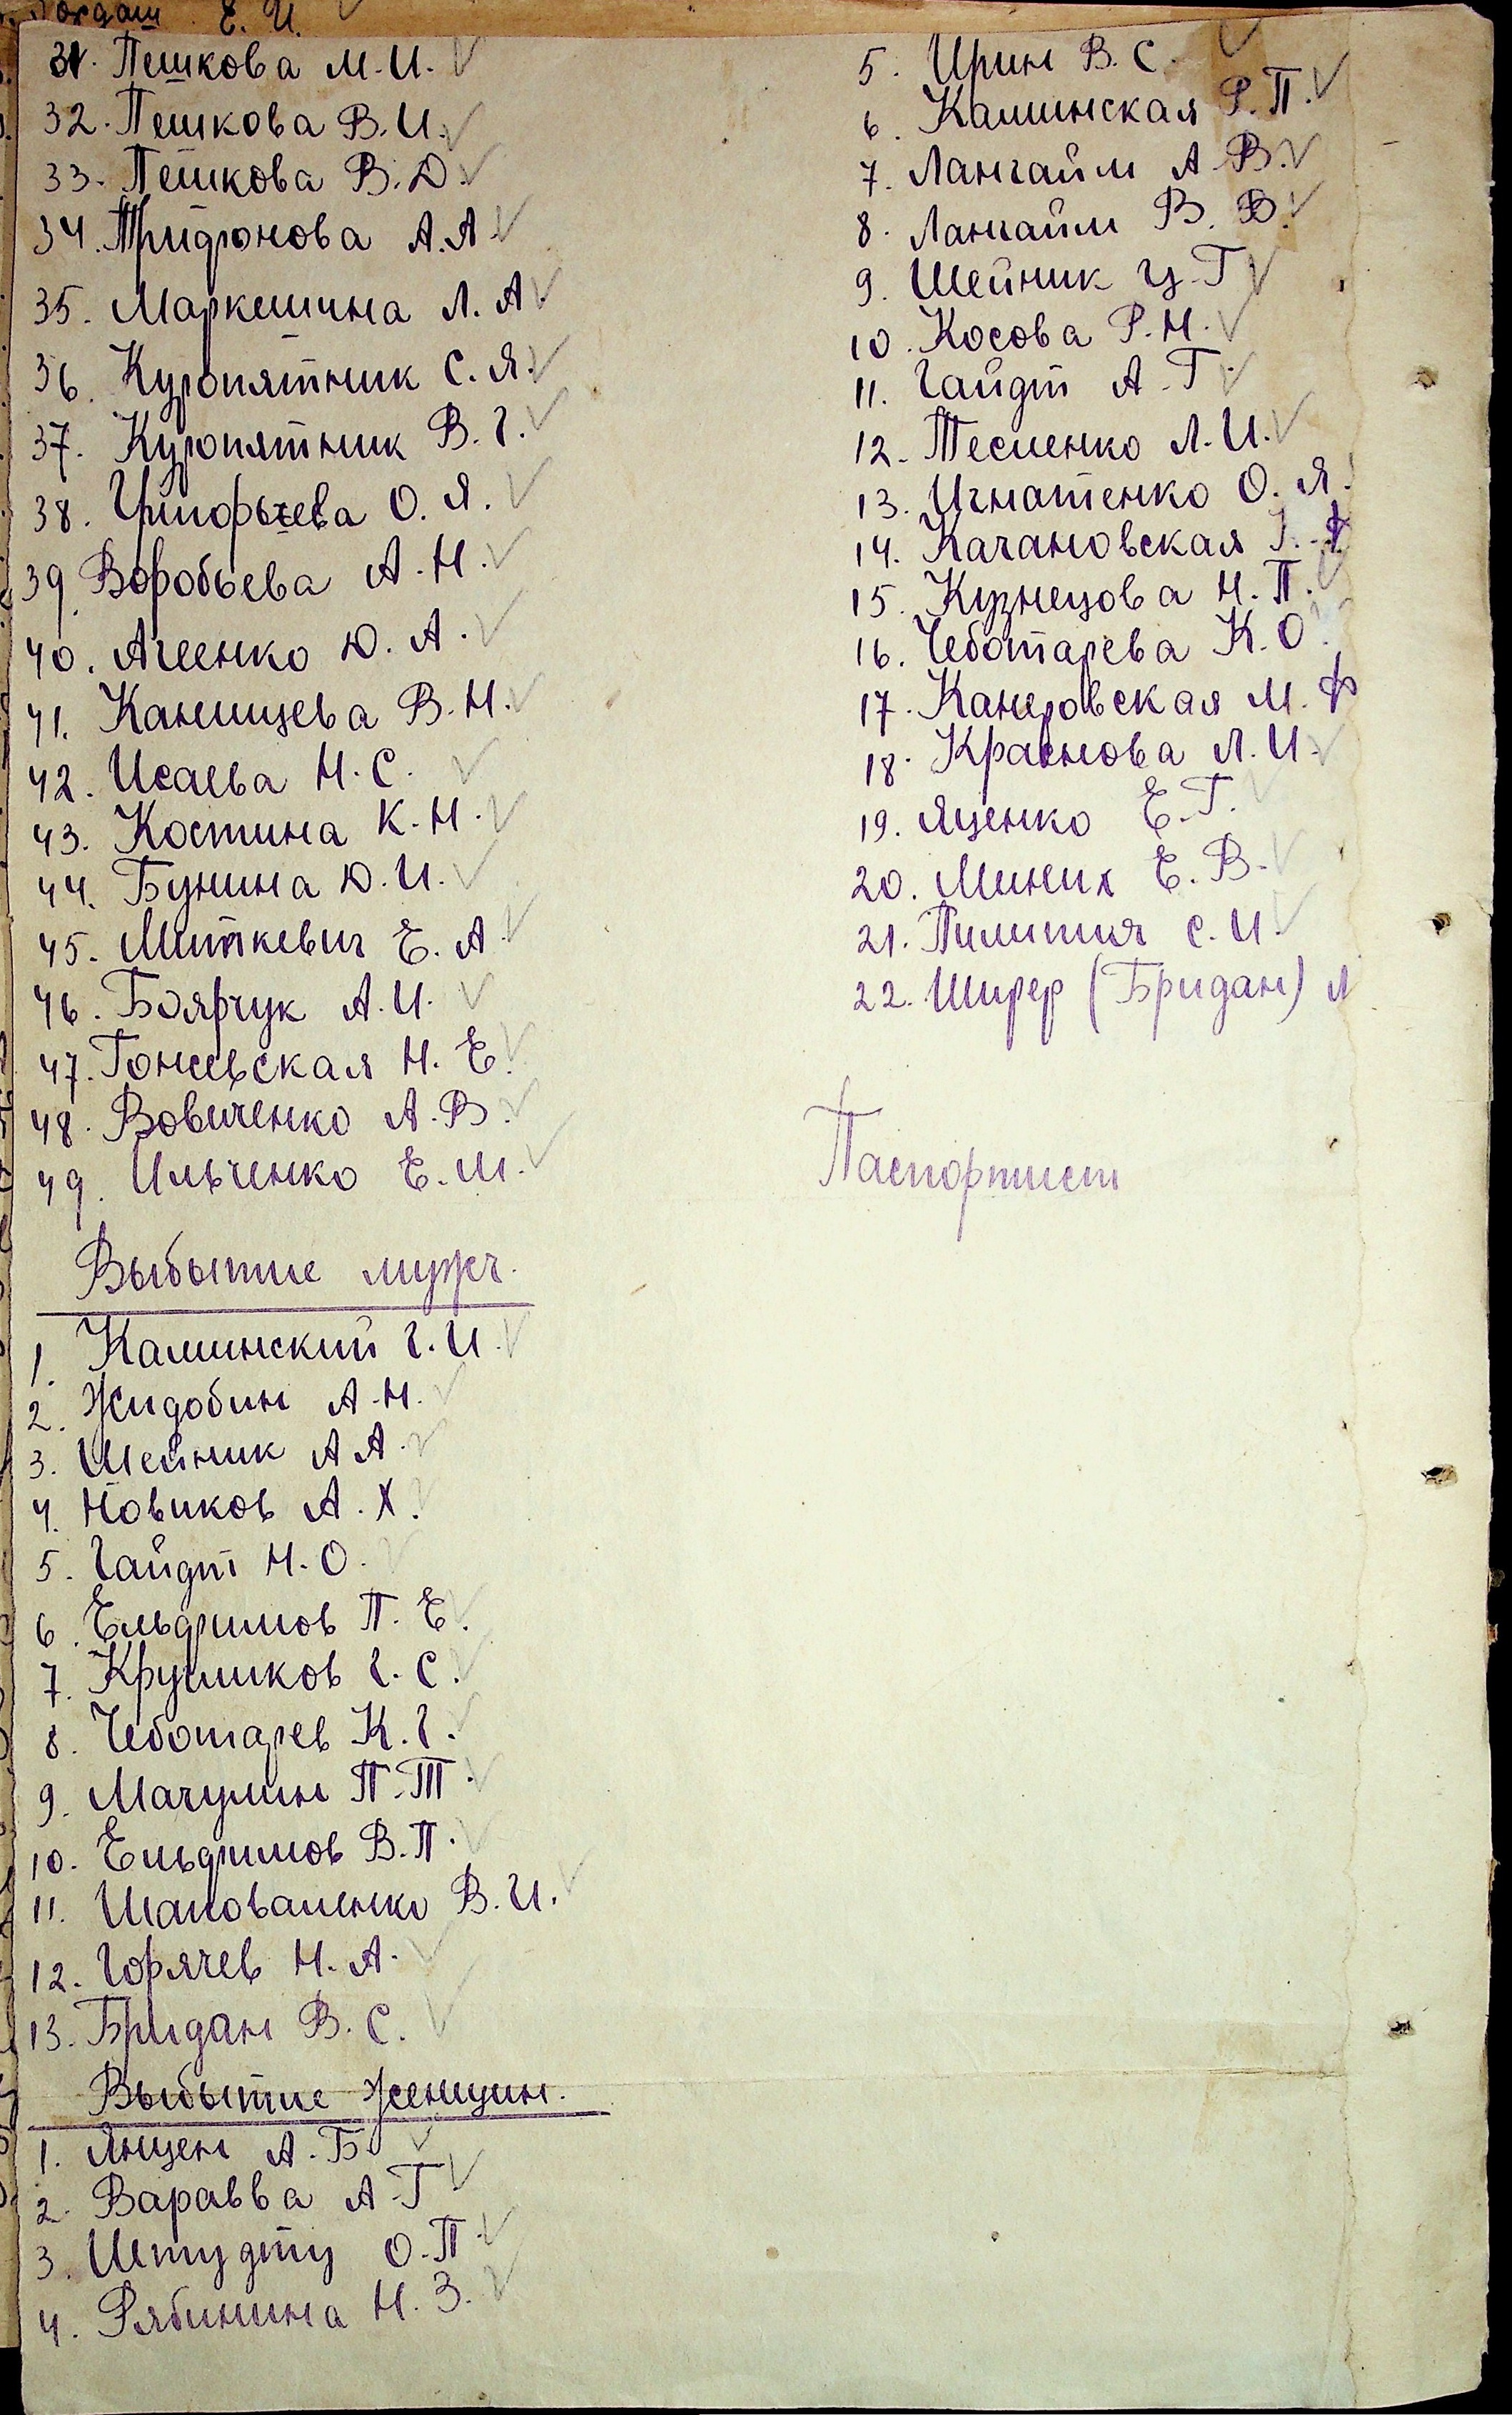 Е. И.
31. Пешкова М. И.
32. Пешкова В. И.
33. Пешкова В. Д.
34. Тридронова А. А.
35. Маркешина Л. А.
36. Куропятник С. Я.
37. Куропятник В. Г.
38. Григорьева О. Я.
39. Воробьева А. Н.
40. Агеенко Ю. А.
41. Канищева В. Н.
42. Исаева Н. С.
43. Костина К. Н.
44. Бунина Ю. И.
45. Миткевич Е. А.
46. Боярчук А. И.
47. Гонсевская Н. Е.
48. Вовченко А. В.
49. Ильченко Е. М.
Выбытие мужч.
1. Калинский Г. И.
2. Жидобин А. Н.
3. Шейник А А.
4. Новиков А. Х.
5. Гайдт Н. О.
6. Ельдринов П. Е.
7. Крушиков Г. С.
8. Чеботарев К. Г.
9. Мачулин П. Т.
10. Ельдринов В. П.
11. Шаповаленко В. И.
12. Горячев Н. А.
13. Бридан В. С.
Выбытие женщин.
1. Янцен А. Б.
2. Варавва А. Г.
3. О. П.
4. Рябинина Н. З.
5. Ирин В. С.
6. Калинская Р. П.
7. Лангайм А. В.
8. Лангайм В. В.
9. Шейник Ц. Г.
10. Косова Р. Н.
11. Гайдт А. Г.
12. Тесленко Л. И.
13. Игнатенко О. Я.
14. Качановская
15. Кузнецова Н. П.
16. Чеботарева К. О.
17. Канеровская М. Ф
18. Краснова Л. И.
19. Яценко Е. Г.
20. Миних Е. В.
21. С. И.
22. Ширер (Бридан) Л
Паспортист